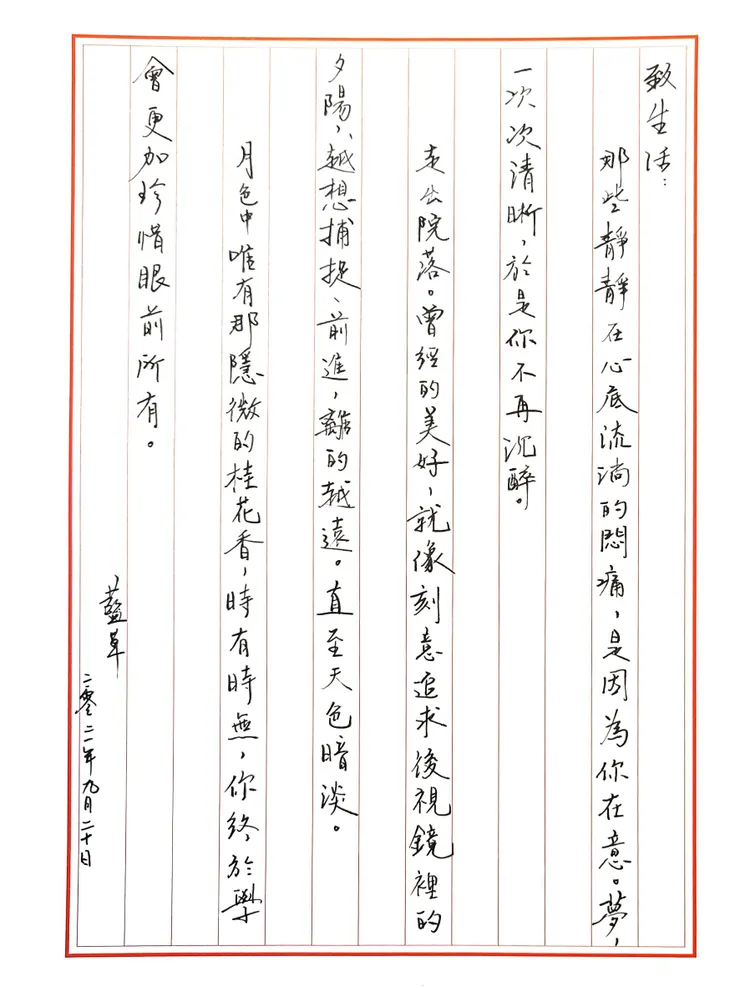 致生活：
那些靜靜在心底流淌的悶痛，是因為你在意。夢，
一次次清晰，於是你不再沉醉。
走出院落。曾經的美好，就像刻意追求後視鏡裡的
夕陽，越想捕捉、前進，離的越遠。直至天色暗淡。
月色中唯有那隱微的桂花香，時有時無，你終於學
會更加珍惜眼前所有。
藍草
二零二一年九月二十日